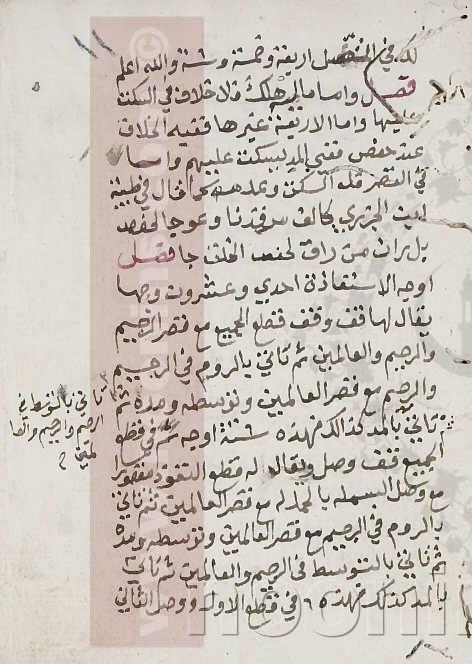 لك في المتصل اربعة وخمسة وستة والله اعلم
فصل واما ماليه هلك فلا خلاف في السكت
عليها واما الاربعة غيرها ففيه الخلاف
عند حفص ففي المد يسكت عليهم واما
في القصر فله السكت وعدمه كما قال في طيبة
ابن الجزري كالف مرقدنا وعوجا لحفص
بل ران من راق لحفص الخلف جا فصل
اوجه الاستعاذة احدى وعشرون وجها
يقال لها قف وقف قطع الجميع مع قصر الرجيم
والرحيم والعالمين ثم تاتي بالروم في الرجيم
والرحيم مع قصر العالمين وتوسطه ومده ثم
تاتي بالمد كذلك فهذه ستة اوجه ثم في قطع
الجميع فقف وصل ويقال له قطع التعوذ
مع وصل البسملة بالحمد له مع قصر العالمين ثم تاتي
بالروم في الرجيم مع قصر العالمين وتوسطه ومده
ثم تاتي بالتوسط في الرجيم والعالمين ثم تاتي
بالمد كذلك فهذه ٦ في قطع الاول ووصل الثاني
تاتي بالتوسط في
الرجيم والرحيم والعا
لمين